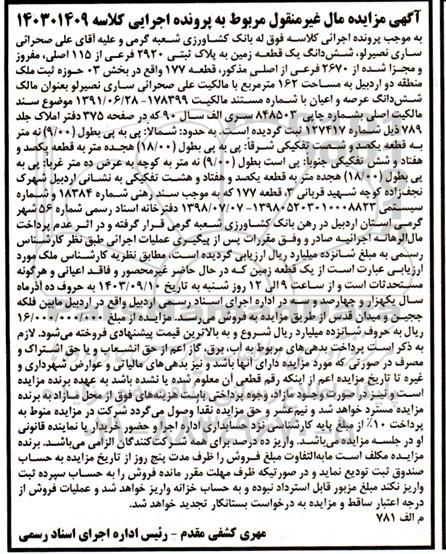 آگهی مزایده مال غیرمنقول مربوط به پرونده اجرایی کلاسه ۱۴۰۳۰۱۴۰۹
به موجب پرونده اجرائی کلاسه فوق له بانک کشاورزی شعبه گرمی و علیه آقای علی صحرائی
ساری نصیرلو، شش‌دانگ یک قطعه زمین به پلاک ثبتی ۲۹۲۰ فرعی از ۱۱۵ اصلی، مفروز
و مجزا شده از ۲۶۷۰ فرعی از اصلی مذکور، قطعه ۱۷۷ واقع در بخش ۰۳ حوزه ثبت ملک
منطقه دو اردبیل به مساحت ۱۶۲ مترمربع با مالکیت علی صحرائی ساری نصیرلو بعنوان مالک
شش‌دانگ عرصه و اعیان با شماره مستند مالکیت ۱۷۸۳۹۹- ۱۳۹۱/۰۶/۲۸ موضوع سند
مالکیت اصلی بشماره چاپی ۸۴۸۵۰۳ سری الف سال ۹۰ که در صفحه ۳۷۵ دفتر املاک جلد
۷۸۹ ذیل شماره ۱۲۷۴۱۷ ثبت گردیده است. به حدود: شمالا: پی به پی بطول (۹/۰۰) نه متر
به قطعه یکصد و شصت تفکیکی شرقا: پی به پی بطول (۱۸/۰۰) هجده متر به قطعه یکصد و
هفتاد و شش تفکیکی جنوبا: پی است بطول (۹/۰۰) نه متر به کوچه به عرض ده متر غربا: پی به
پی بطول (۱۸/۰۰) هجده متر به قطعه یکصد و هفتاد و هشت تفکیکی به نشانی اردبیل شهرک
نجف‌زاده کوچه شهید قربانی ۳، قطعه ۱۷۷ که به موجب سند رهنی شماره ۱۸۳۸۴ و شماره
سیستمی ۱۳۹۸۰۵۲۰۳۰۱۰۰۰۸۸۲۳- ۱۳۹۸/۰۷/۰۷ دفترخانه اسناد رسمی شماره ۵۶ شهر
گرمی استان اردبیل در رهن بانک کشاورزی شعبه گرمی قرار گرفته و در اثر عدم پرداخت
مال‌الرهانه اجرائیه صادر و وفق مقررات پس از پیگیری عملیات اجرائی طبق نظر کارشناس
رسمی به مبلغ شانزده میلیارد ریال ارزیابی گردیده است، مطابق نظریه کارشناس ملک مورد
ارزیابی عبارت است از یک قطعه زمین که در حال حاضر غیرمحصور و فاقد اعیانی و هرگونه
مستحدثات است و از ساعت ۹ الی ۱۲ روز شنبه به تاریخ ۱۴۰۳/۰۹/۱۰ به حروف ده آذرماه
سال یکهزار و چهارصد و سه در اداره اجرای اسناد رسمی اردبیل واقع در اردبیل مابین فلکه
ججین و میدان قدس از طریق مزایده به فروش می‌رسد. مزایده از مبلغ ۱۶/۰۰۰/۰۰۰/۰۰۰
ریال به حروف شانزده میلیارد ریال شروع و به بالاترین قیمت پیشنهادی فروخته می‌شود. لازم
به ذکر است پرداخت بدهی‌های مربوط به آب، برق، گاز اعم از حق انشعاب و یا حق اشتراک و
مصرف در صورتی که مورد مزایده دارای آنها باشد و نیز بدهی‌های مالیاتی و عوارض شهرداری و
غیره تا تاریخ مزایده اعم از اینکه رقم قطعی آن معلوم شده یا نشده باشد به عهده برنده مزایده
است و نیز در صورت وجود مازاد، وجوه پرداختی بابت هزینه‌های فوق از محل مازاد به برنده
مزایده مسترد خواهد شد و نیم‌عشر و حق مزایده نقدا وصول می‌گردد شرکت در مزایده منوط به
پرداخت ۱۰٪ از مبلغ پایه کارشناسی نزد حسابداری اداره اجرا و حضور خریدار یا نماینده قانونی
او در جلسه مزایده می‌باشد. واریز ده درصد برای همه شرکت‌کنندگان الزامی می‌باشد. برنده
مزایده مکلف است مابه‌التفاوت مبلغ فروش را ظرف مدت پنج روز از تاریخ مزایده به حساب
صندوق ثبت تودیع نماید و در صورتیکه ظرف مهلت مقرر مانده فروش را به حساب سپرده ثبت
واریز نکند مبلغ مزبور قابل استرداد نبوده و به حساب خزانه واریز خواهد شد و عملیات فروش از
درجه اعتبار ساقط و مزایده به درخواست بستانکار تجدید خواهد شد.
م الف ۷۸۱
مهری کشفی مقدم – رئیس اداره اجرای اسناد رسمی